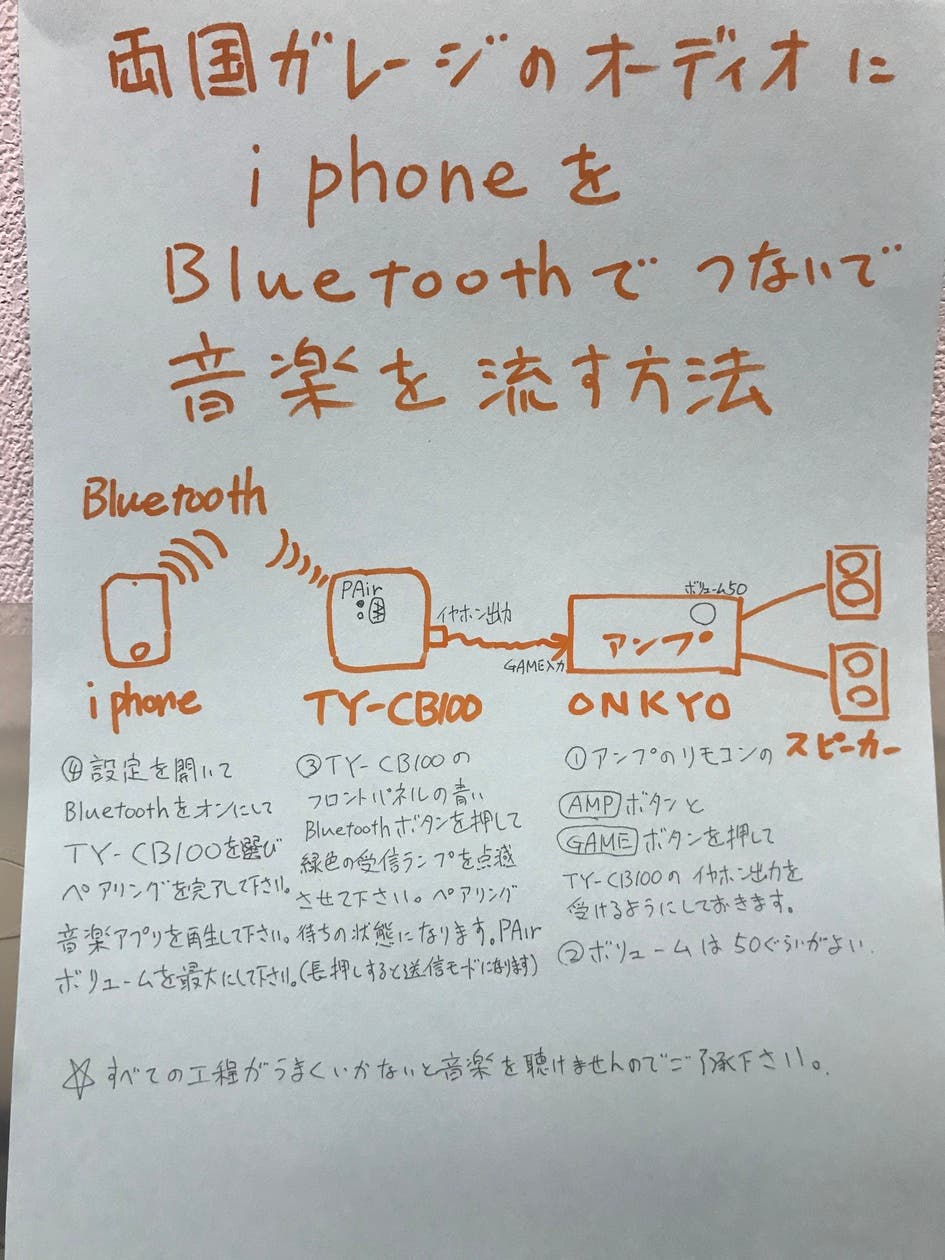 両国ガレージのオーディオに
i phoneを
Bluetoothでつないで
音楽を流す方法
Bluetooth
PAir
イヤホン出力
GAME入力
ボリューム50
アンプ
i phone
TY-CB100
ONKYO
スピーカー
④設定を開いて
Bluetoothをオンにして
TY-CB100を選び
ペアリングを完了して下さい。
音楽アプリを再生して下さい。
ボリュームを最大にして下さい。
③TY-CB100の
フロントパネルの青い
Bluetoothボタンを押して
緑色の受信ランプを点滅
させて下さい。ペアリング
待ちの状態になります。PAir
(長押しすると送信モードになります)
①アンプのリモコンの
AMPボタンと
GAMEボタンを押して
TY-CB100のイヤホン出力を
受けるようにしておきます。
②ボリュームは50ぐらいがよい.
☆すべての工程がうまくいかないと音楽を聴けませんのでご了承下さい。